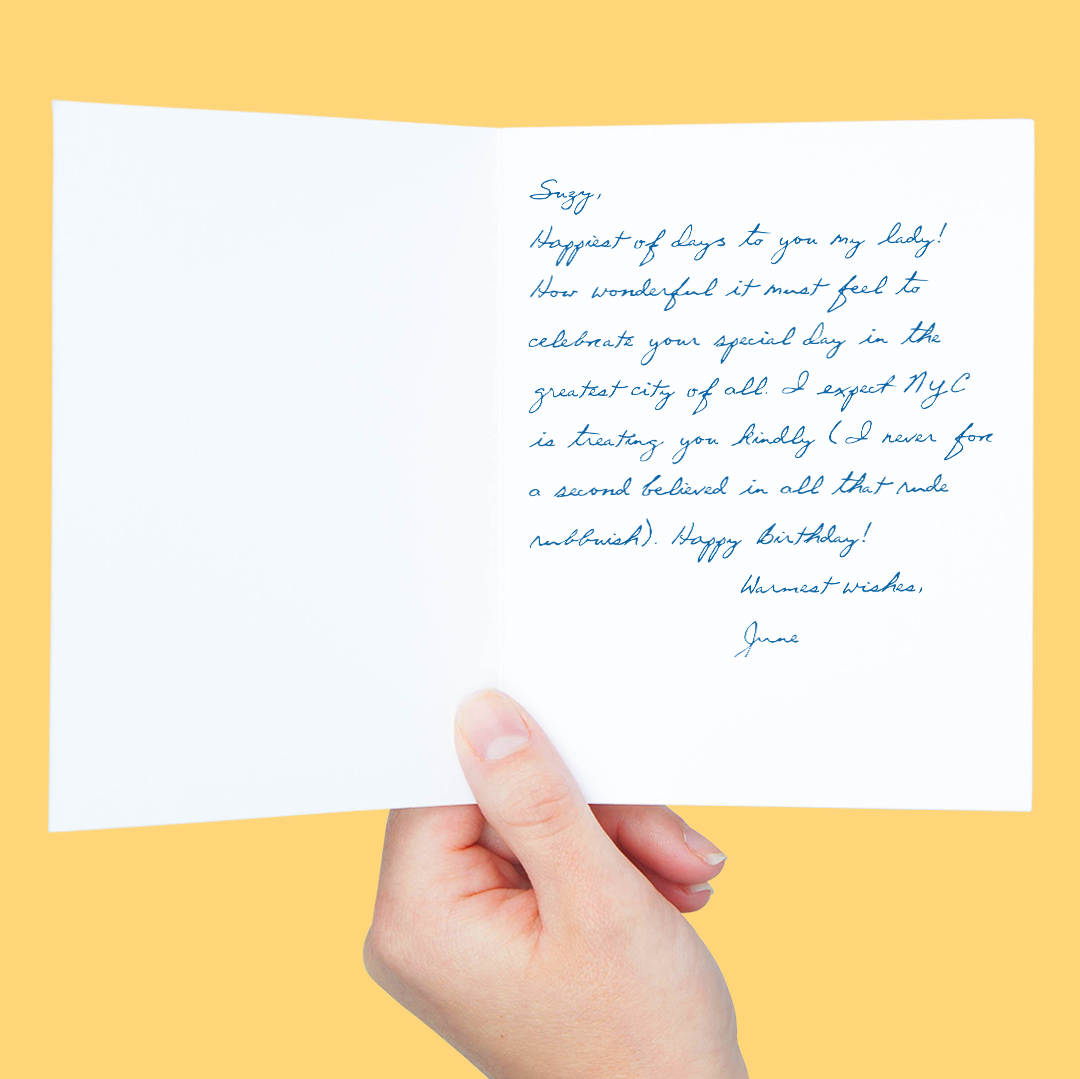 Suzy,
Happiest of days to you my lady!
How wonderful it must feel to
celebrate your special day in the
greatest city of all. I expect NYC
is treating you kindly (I never fore
a second believed in all that rude
rubbuish). Happy Birthday!
Warmest wishes,
June